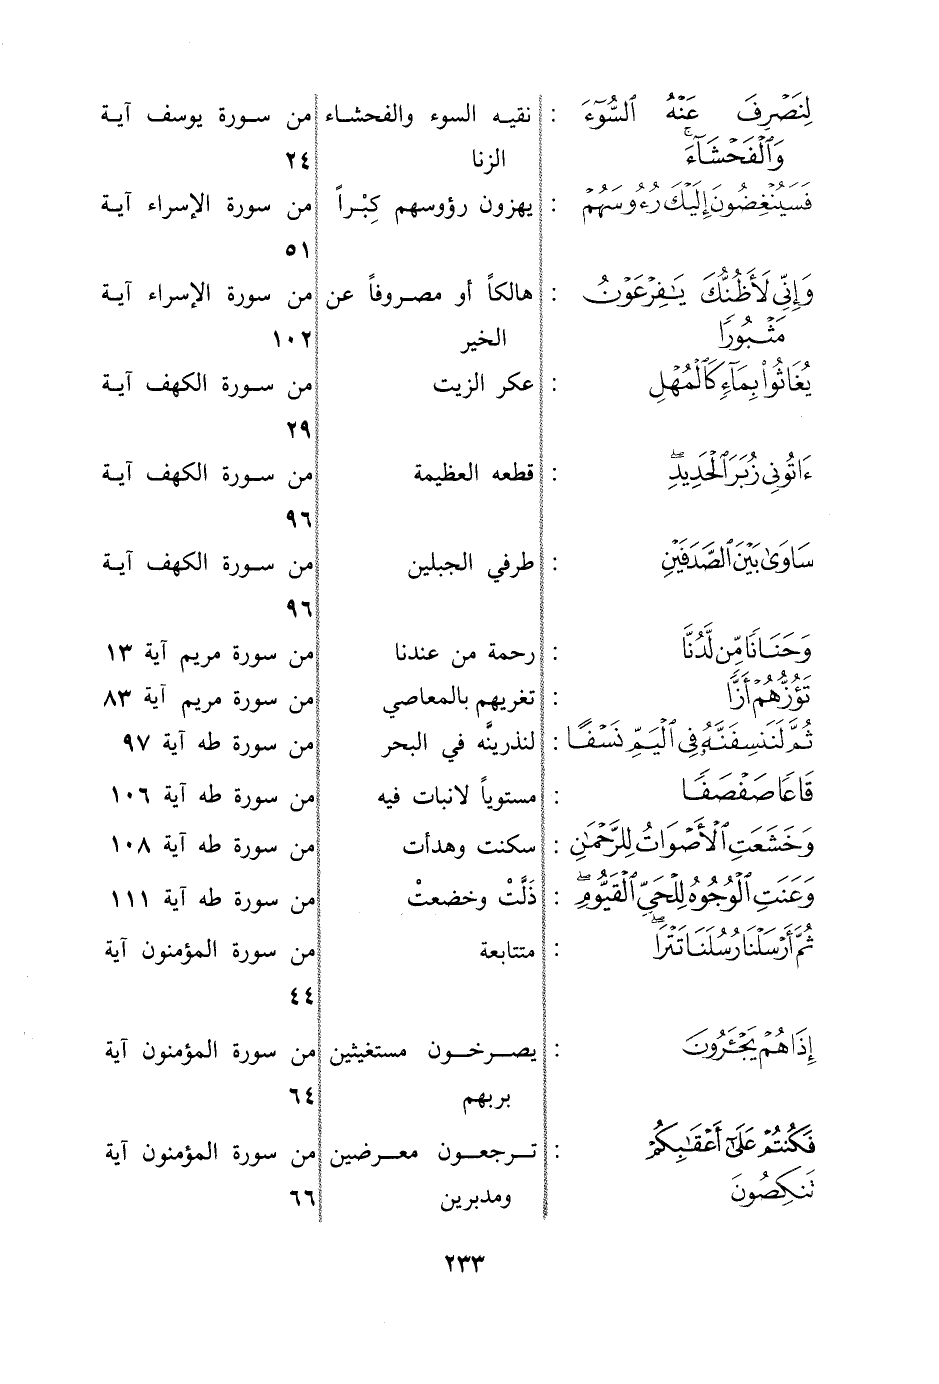 لِنَصْرِفَ عَنْهُ ٱلسُّوٓءَ : نقيه السوء والفحشاء من سورة يوسف آية
وَٱلْفَحْشَآءَ ۚ الزنا ٢٤
فَسَيُنْغِضُونَ إِلَيْكَ رُءُوسَهُمْ : يهزون رؤوسهم كِبْراً من سورة الإسراء آية
٥١
وَإِنِّى لَأَظُنُّكَ يَـٰفِرْعَوْنُ : هالكاً أو مصروفاً عن من سورة الإسراء آية
مَثْبُورًا الخير ١٠٢
يُغَاثُوا۟ بِمَآءٍ كَٱلْمُهْلِ : عكر الزيت من سورة الكهف آية
٢٩
ءَاتُونِى زُبَرَ ٱلْحَدِيدِ ۖ : قطعه العظيمة من سورة الكهف آية
٩٦
سَاوَىٰ بَيْنَ ٱلصَّدَفَيْنِ : طرفي الجبلين من سورة الكهف آية
٩٦
وَحَنَانًا مِّن لَّدُنَّا : رحمة من عندنا من سورة مريم آية ١٣
تَؤُزُّهُمْ أَزًّا : تغريهم بالمعاصي من سورة مريم آية ٨٣
ثُمَّ لَنَنسِفَنَّهُۥ فِى ٱلْيَمِّ نَسْفًا : لنذرينَّه في البحر من سورة طه آية ٩٧
قَاعًا صَفْصَفًا : مستوياً لانبات فيه من سورة طه آية ١٠٦
وَخَشَعَتِ ٱلْأَصْوَاتُ لِلرَّحْمَـٰنِ : سكنت وهدأت من سورة طه آية ١٠٨
وَعَنَتِ ٱلْوُجُوهُ لِلْحَىِّ ٱلْقَيُّومِ ۖ : ذَلَّتْ وخضعتْ من سورة طه آية ١١١
ثُمَّ أَرْسَلْنَا رُسُلَنَا تَتْرَا ۖ : متتابعة من سورة المؤمنون آية
٤٤
إِذَا هُمْ يَجْـَٔرُونَ : يصرخون مستغيثين من سورة المؤمنون آية
بربهم ٦٤
فَكُنتُمْ عَلَىٰٓ أَعْقَـٰبِكُمْ : ترجعون معرضين من سورة المؤمنون آية
تَنكِصُونَ ومدبرين ٦٦
٢٣٣